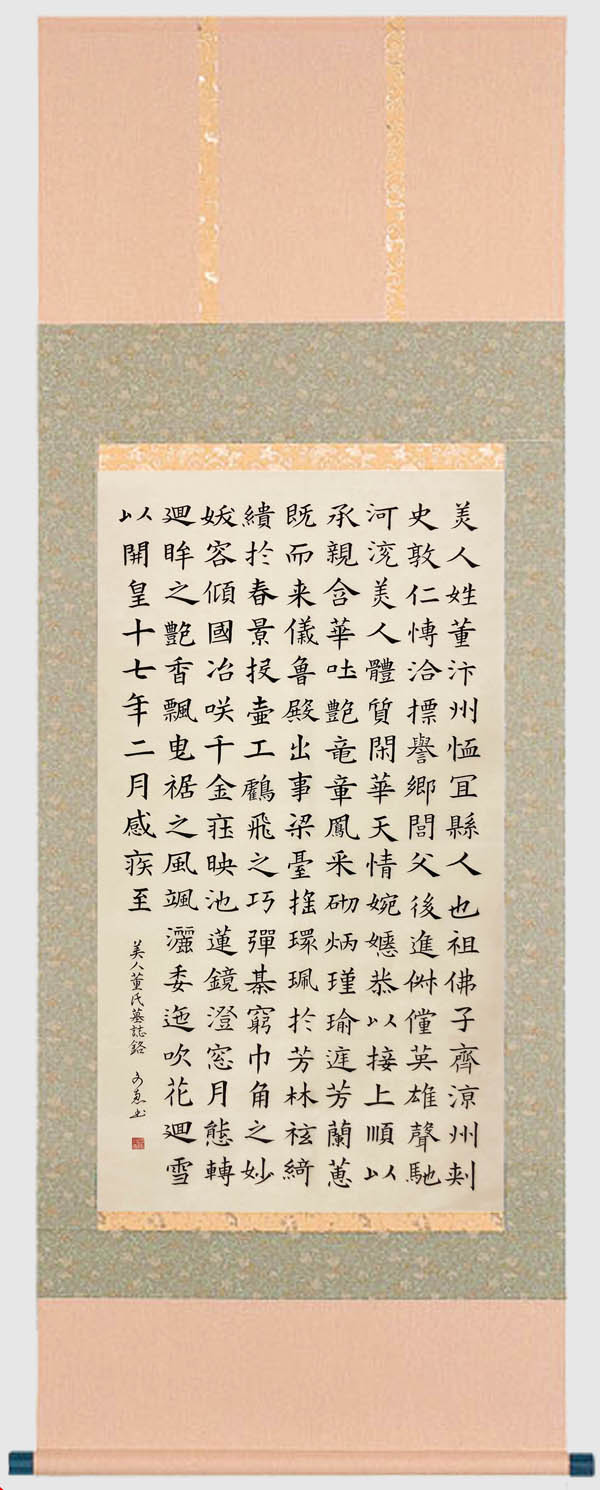 美人姓董汴州恤冝縣人也祖佛子齊涼州刺
史敦仁慱洽摽譽鄉閭父後進俶儻英雄聲馳
河兗美人體質閑華天情婉嫕恭以接上順以
承親含華吐艷竜章鳳采砌炳瑾瑜庭芳蘭蕙
既而来儀魯殿出事梁臺搖環珮於芳林袨綺
繢於春景投壷工鶴飛之巧彈棊窮巾角之妙
妭容傾國冶咲千金莊映池蓮鏡澄窓月態轉
廻眸之艷香飄曳裾之風颯灑委迤吹花廻雪
以開皇十七年二月感疾至
美人董氏墓誌銘